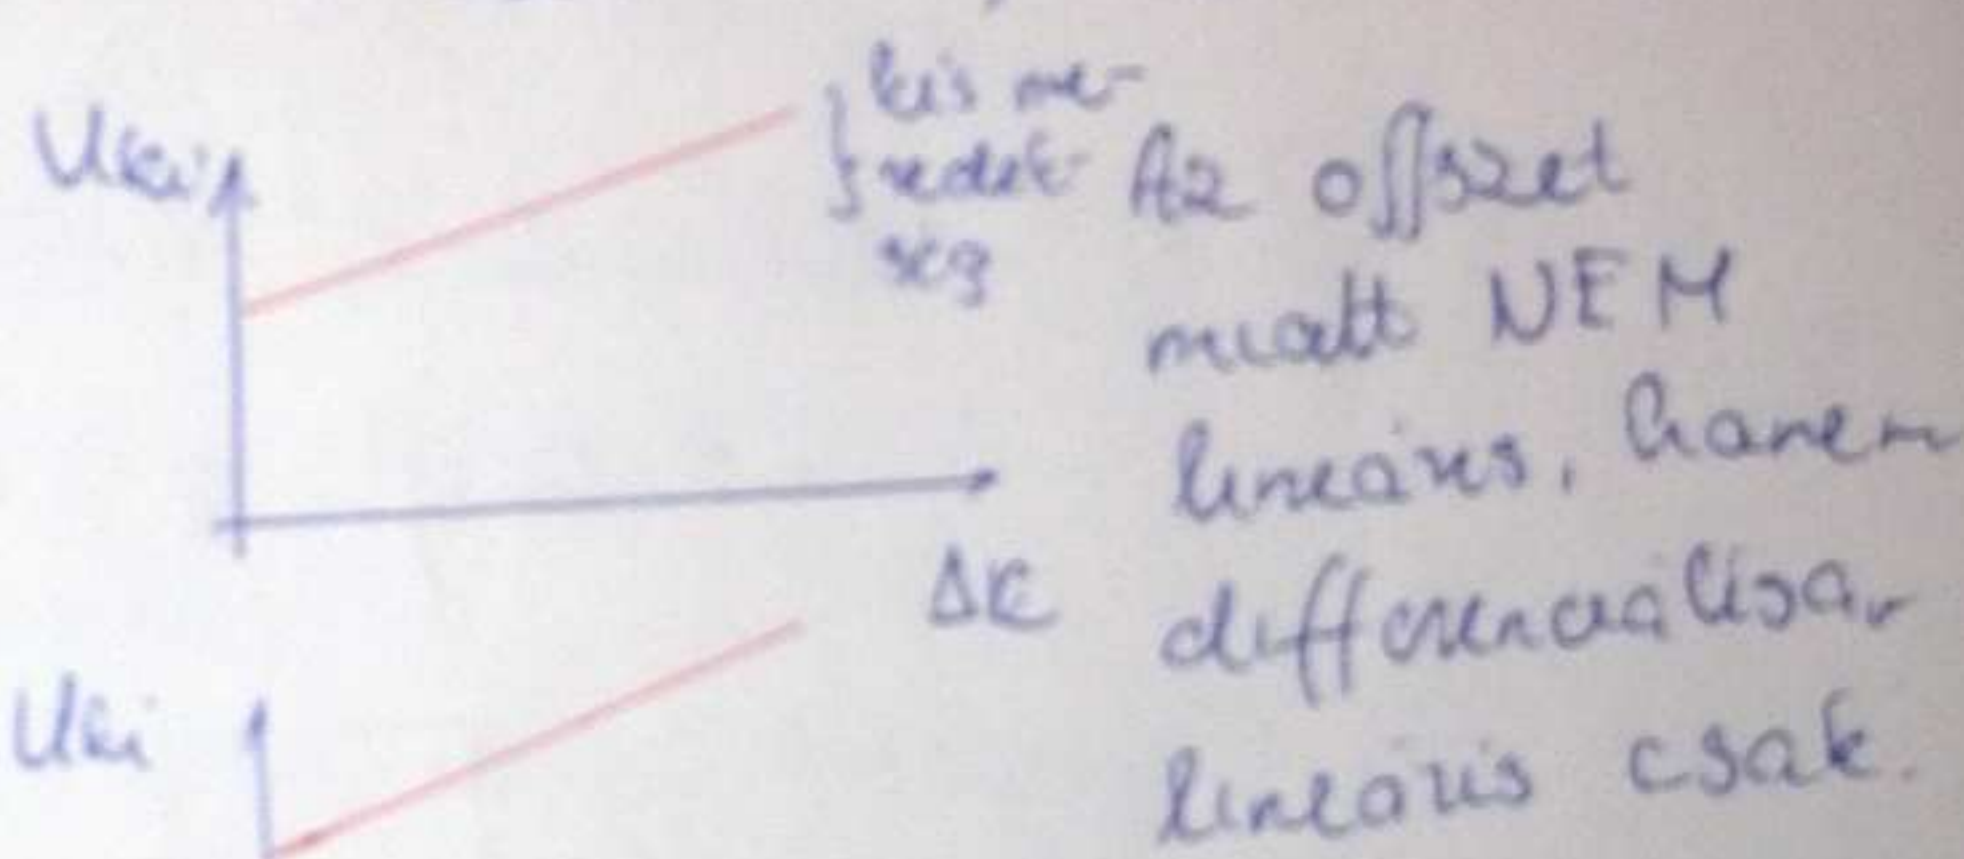 Uki
kis me-
redek-
ség
Az offszet
miatt NEM
lineáris, hanem
differenciálisan
lineáris csak.
ΔK
Uki